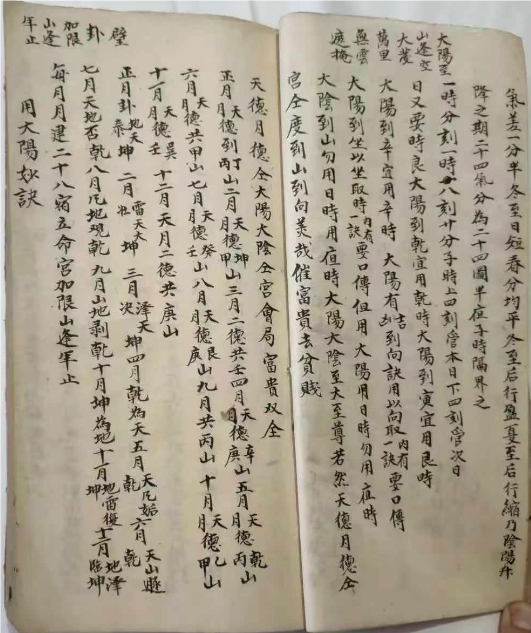 氣差一分半冬至日短春分均平冬至后行盈夏至后行縮乃陰陽升
降之期二十四氣分為二十四圖半在子時隔界之
大陽至一時分刻一時八刻廿分子時上四刻管本日下四刻管次日
山逢空日又要時良大陽到乾宜用乾時大陽到寅宜用艮時
大發
萬里
無雲
遮掩
大陽到辛宜用辛時 大陽有吉到向訣用以向取一訣內有要口傳
大陽到坐以坐取時一訣內有要口傳但用 大陽用日時勿用夜時
大陰到山勿用日時用夜時大陽大陰至大至尊若然天德月德仝
宮仝度到山到向美哉催富貴去貧賤
天德月德仝大陽大陰仝宮會局富貴双全
正月天德到丁月德丙山二月天德坤月德甲山三月二德共壬四月天德辛月德庚山五月天德乾月德丙山
六月天月德共甲山七月天德癸月德壬山八月天德艮月德庚山九月共丙山十月天德乙月德甲山
十一月天德巽月德壬 十二月天月二德共庚山
壁
卦
加限
山逢
年止
正月卦地天泰坤 二月雷天大壯坤 三月澤天夬坤四月乾為天五月天風姤乾六月天山遯乾
七月天地否乾八月風地觀乾九月山地剥乾十月坤為地十一月地雷復坤十二月地澤臨坤
每月月建二十八宿立命宮加限山逢年止
用大陽妙訣